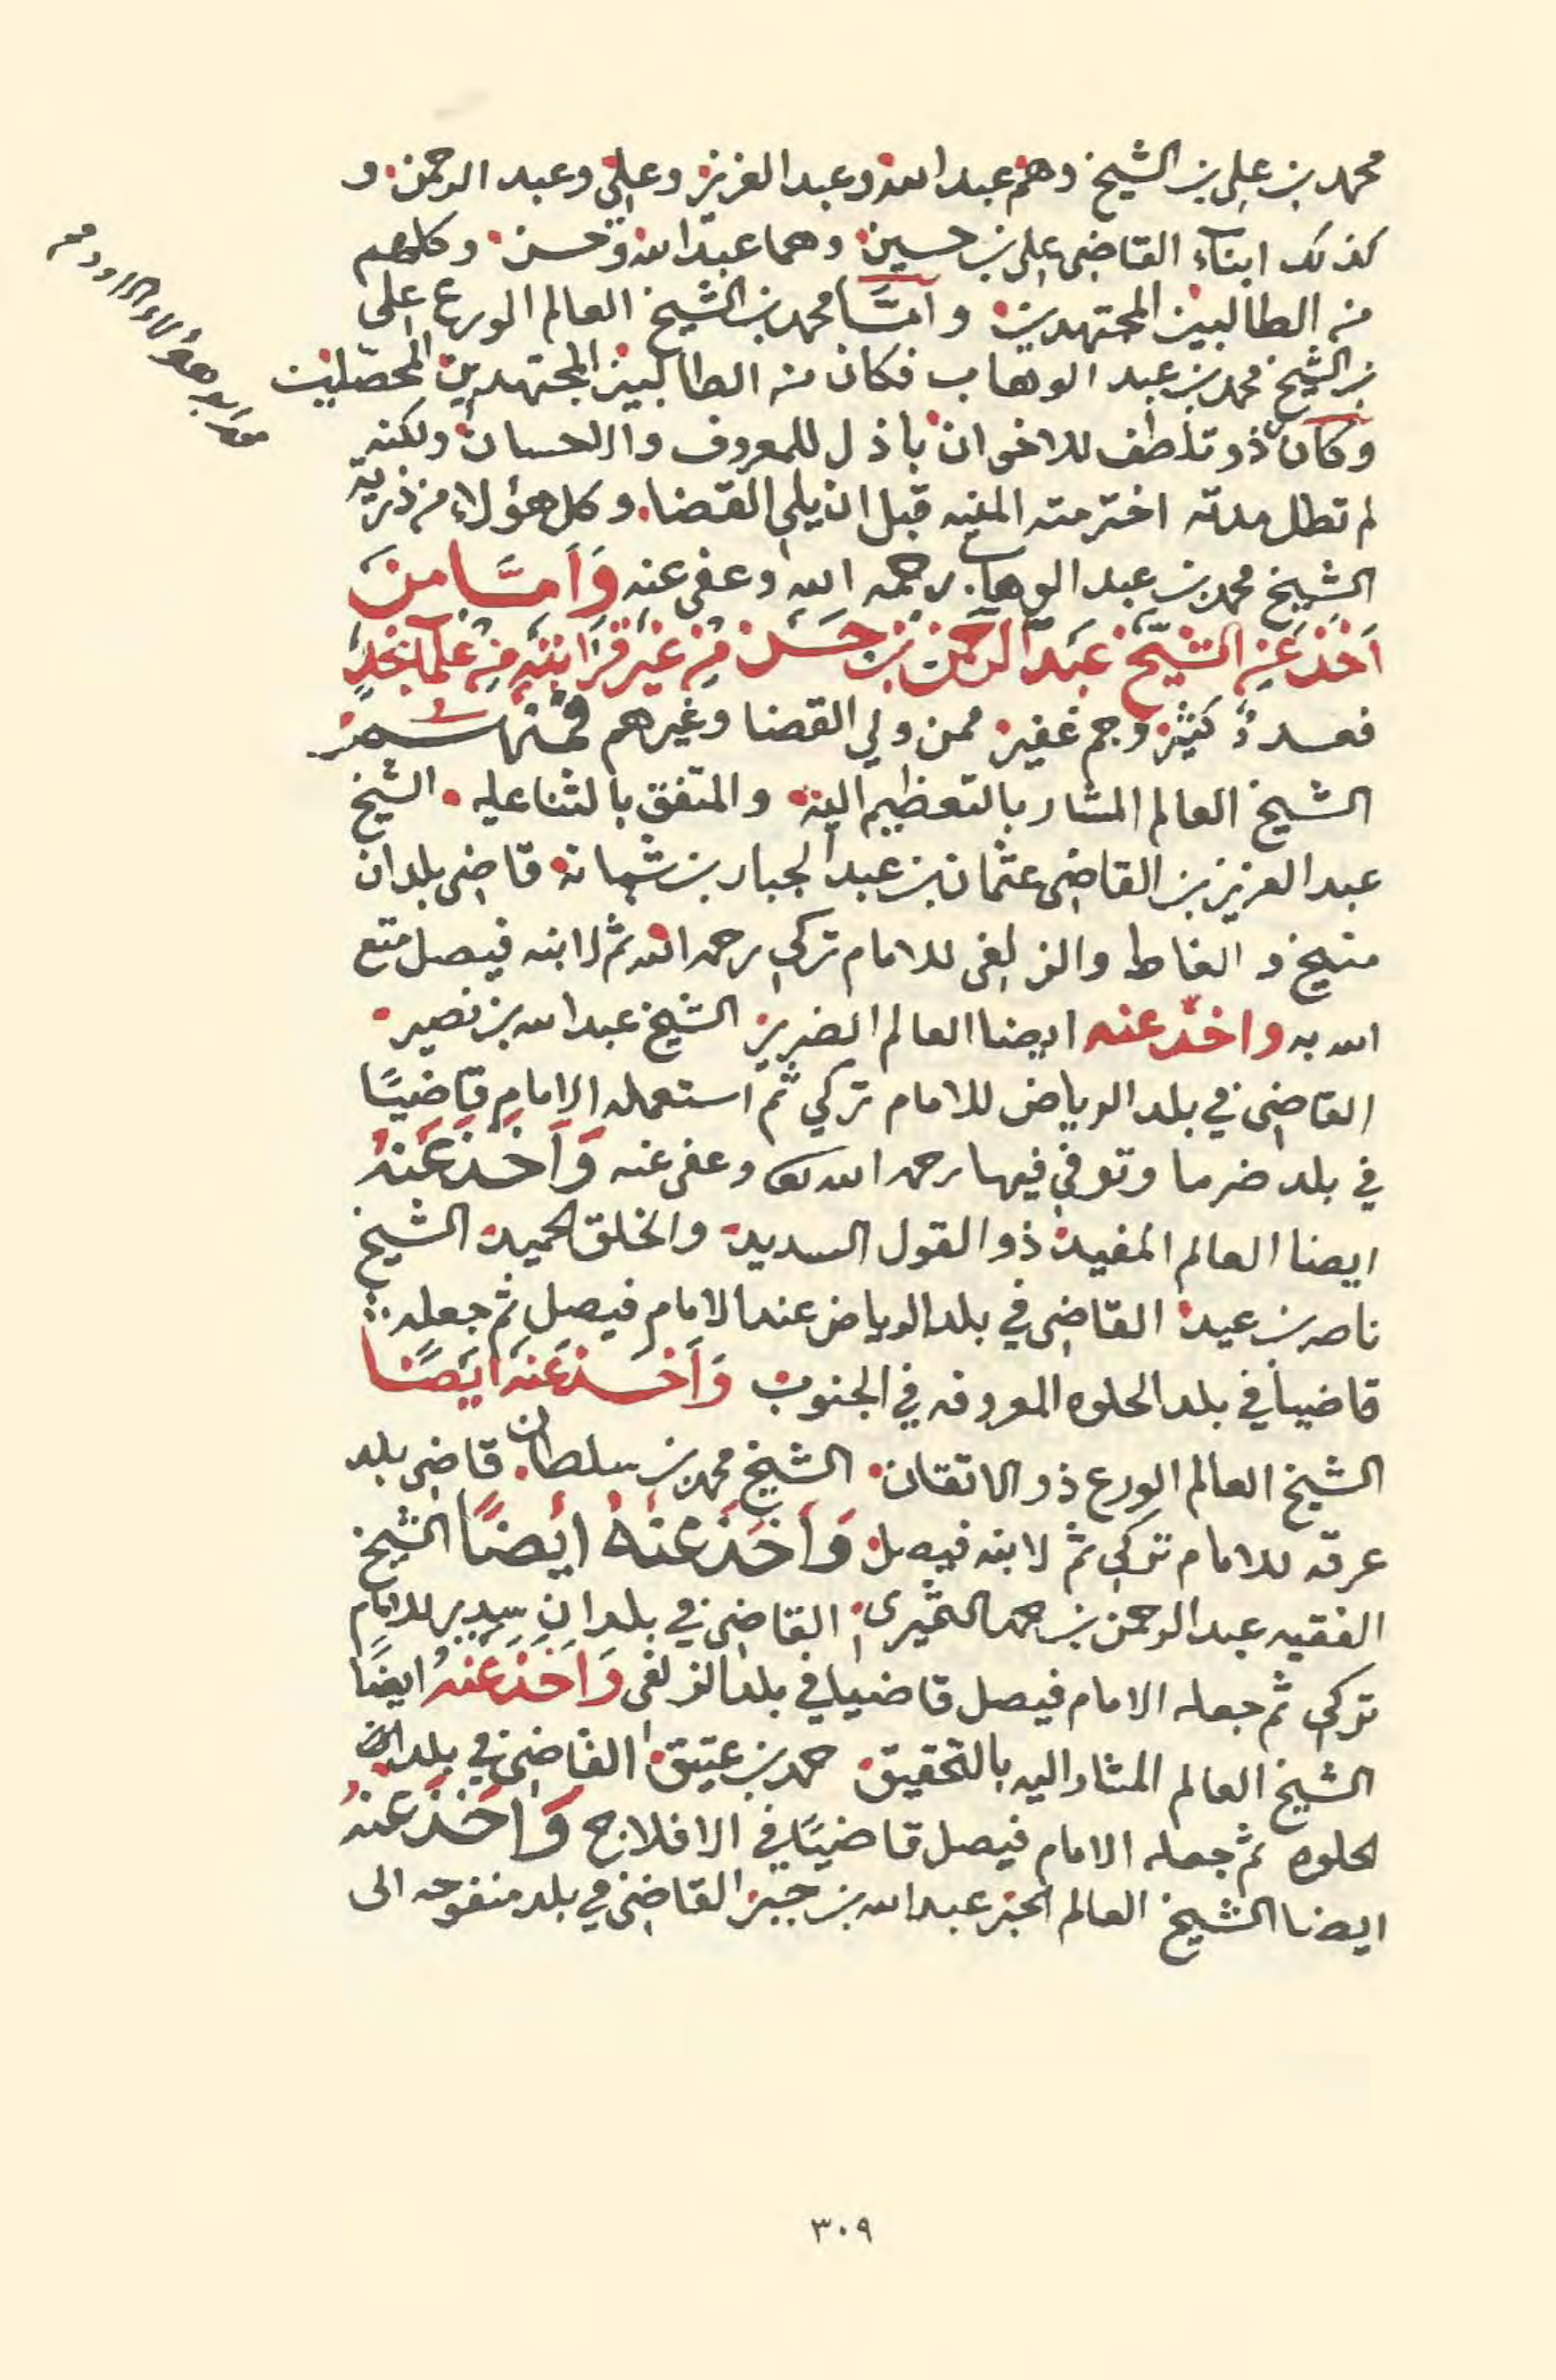 محمد بن علي بن الشيخ وهم عبد الله وعبد العزيز وعلي وعبد الرحمن و
كذلك ابناء القاضي علي بن حسين وهما عبد الله وحسن وكلهم
من الطالبين المجتهدين وامَّا محمد بن الشيخ العالم الورع علي
بن الشيخ محمد بن عبد الوهاب فكان من الطالبين المجتهدين المحصّلين
وكان ذو تلطف للاخوان باذل للمعروف والاحسان ولكنه
لم تطل مدته اخترمته المنيه قبل ان يلي القضا وكل هؤلاء من ذرية
الشيخ محمد بن عبد الوهاب رحمه الله وعفى عنه وَاَمَّا مَنْ
اَخَذَ عَنِ الشَّيْخ عَبْد الرَّحْمن بْن حَسَن مِنْ غَيْرِ قَرَابَتِهِ مِنْ عُلَمَا نَجْدٍ
فعددٌ كثير وجم غفير ممن ولي القضا وغيرهم فمنهم
الشيخ العالم المشار بالتعظيم اليه والمتفق بالثنا عليه الشيخ
عبد العزيز بن القاضي عثمان بن عبد الجبار بن شبانه قاضي بلدان
منيخ و الغاط والزلفى للامام تركي رحمه الله ثم لابنه فيصل متع
الله به واخذ عنه ايضا العالم الضرير الشيخ عبد الله بن نصير
القاضي في بلد الرياض للامام تركي ثم استعمله الامام قاضيًا
في بلد ضرما وتوفي فيها رحمه الله وعفى عنه وَاَخَذَ عَنْهُ
ايضا العالم المفيد ذو القول السديد والخلق الحميد الشيخ
ناصر بن عيد القاضي في بلد الرياض عند الامام فيصل ثم جعله
قاضيا في بلد الحلوه المعروفه في الجنوب وَاَخَذَ عَنْهُ اَيْضًا
الشيخ العالم الورع ذو الاتقان الشيخ محمد بن سلطان قاضي بلد
عرقه للامام تركي ثم لابنه فيصل وَاَخَذَ عَنْهُ ايْضًا الشيخ
الفقيه عبد الرحمن بن حمد الثميرى القاضي في بلدان سدير للامام
تركي ثم جعله الامام فيصل قاضيا في بلد الزلفى وَاَخَذَ عَنْهُ ايضًا
الشيخ العالم المشار اليه بالتحقيق حمد بن عتيق القاضي في بلدان
الحلوه ثم جعله الامام فيصل قاضيًا في الافلاج وَاَخَذَ عَنْهُ
ايضا الشيخ العالم الحبر عبد الله بن جبر القاضي في بلد منفوحه الى
٣٠٩